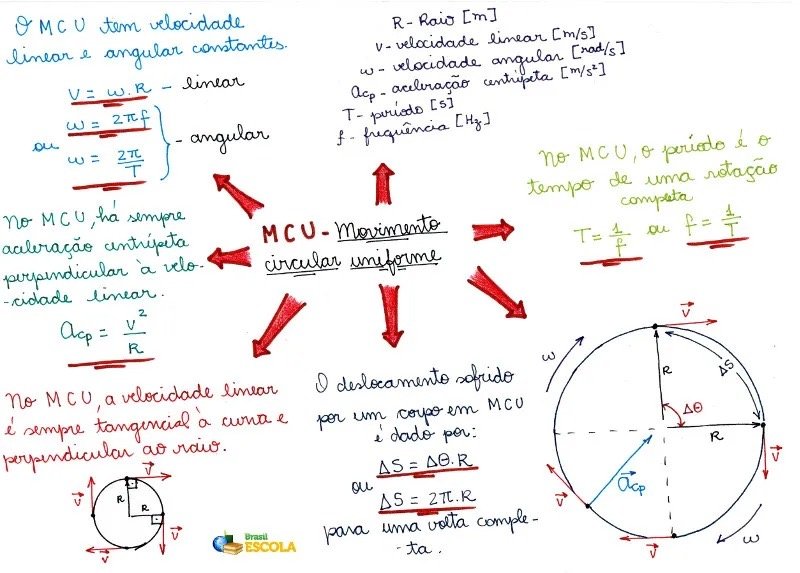 O MCU tem velocidade
linear e angular constantes.
V = ω.R - linear
ou
ω = 2πf
ω = 2π/T
- angular
R - Raio [m]
v - velocidade linear [m/s]
ω - velocidade angular [rad/s]
acp - aceleração centrípeta [m/s²]
T - período [s]
f - frequência [Hz]
No MCU, o período é o
tempo de uma rotação
completa
T = 1/f ou f = 1/T
MCU - Movimento
circular uniforme
No MCU, há sempre
aceleração centrípeta
perpendicular à velo-
-cidade linear.
acp = v²/R
No MCU, a velocidade linear
é sempre tangencial à curva e
perpendicular ao raio.
V
V
R
R
V
V
Brasil
ESCOLA
O deslocamento sofrido
por um corpo em MCU
é dado por:
ΔS = Δθ.R
ou
ΔS = 2π.R
para uma volta comple-
-ta.
V
ω
R
ΔS
Δθ
R
V
acp
V
V
ω